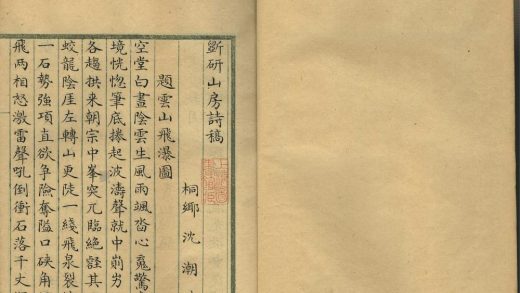 斲研山房詩稿
桐鄉沈潮
題雲山飛瀑圖
空堂白晝陰雲生風雨颯沓心䰟驚
境恍惚筆底捲起波濤聲就中崱屴
各趨拱来朝宗中峯突兀臨絶壑其
蛟龍陰崖左轉山更陡一綫飛泉裂
一石勢強項直欲争險奪隘口硤角
飛兩相怒激雷聲吼倒衝石落千丈